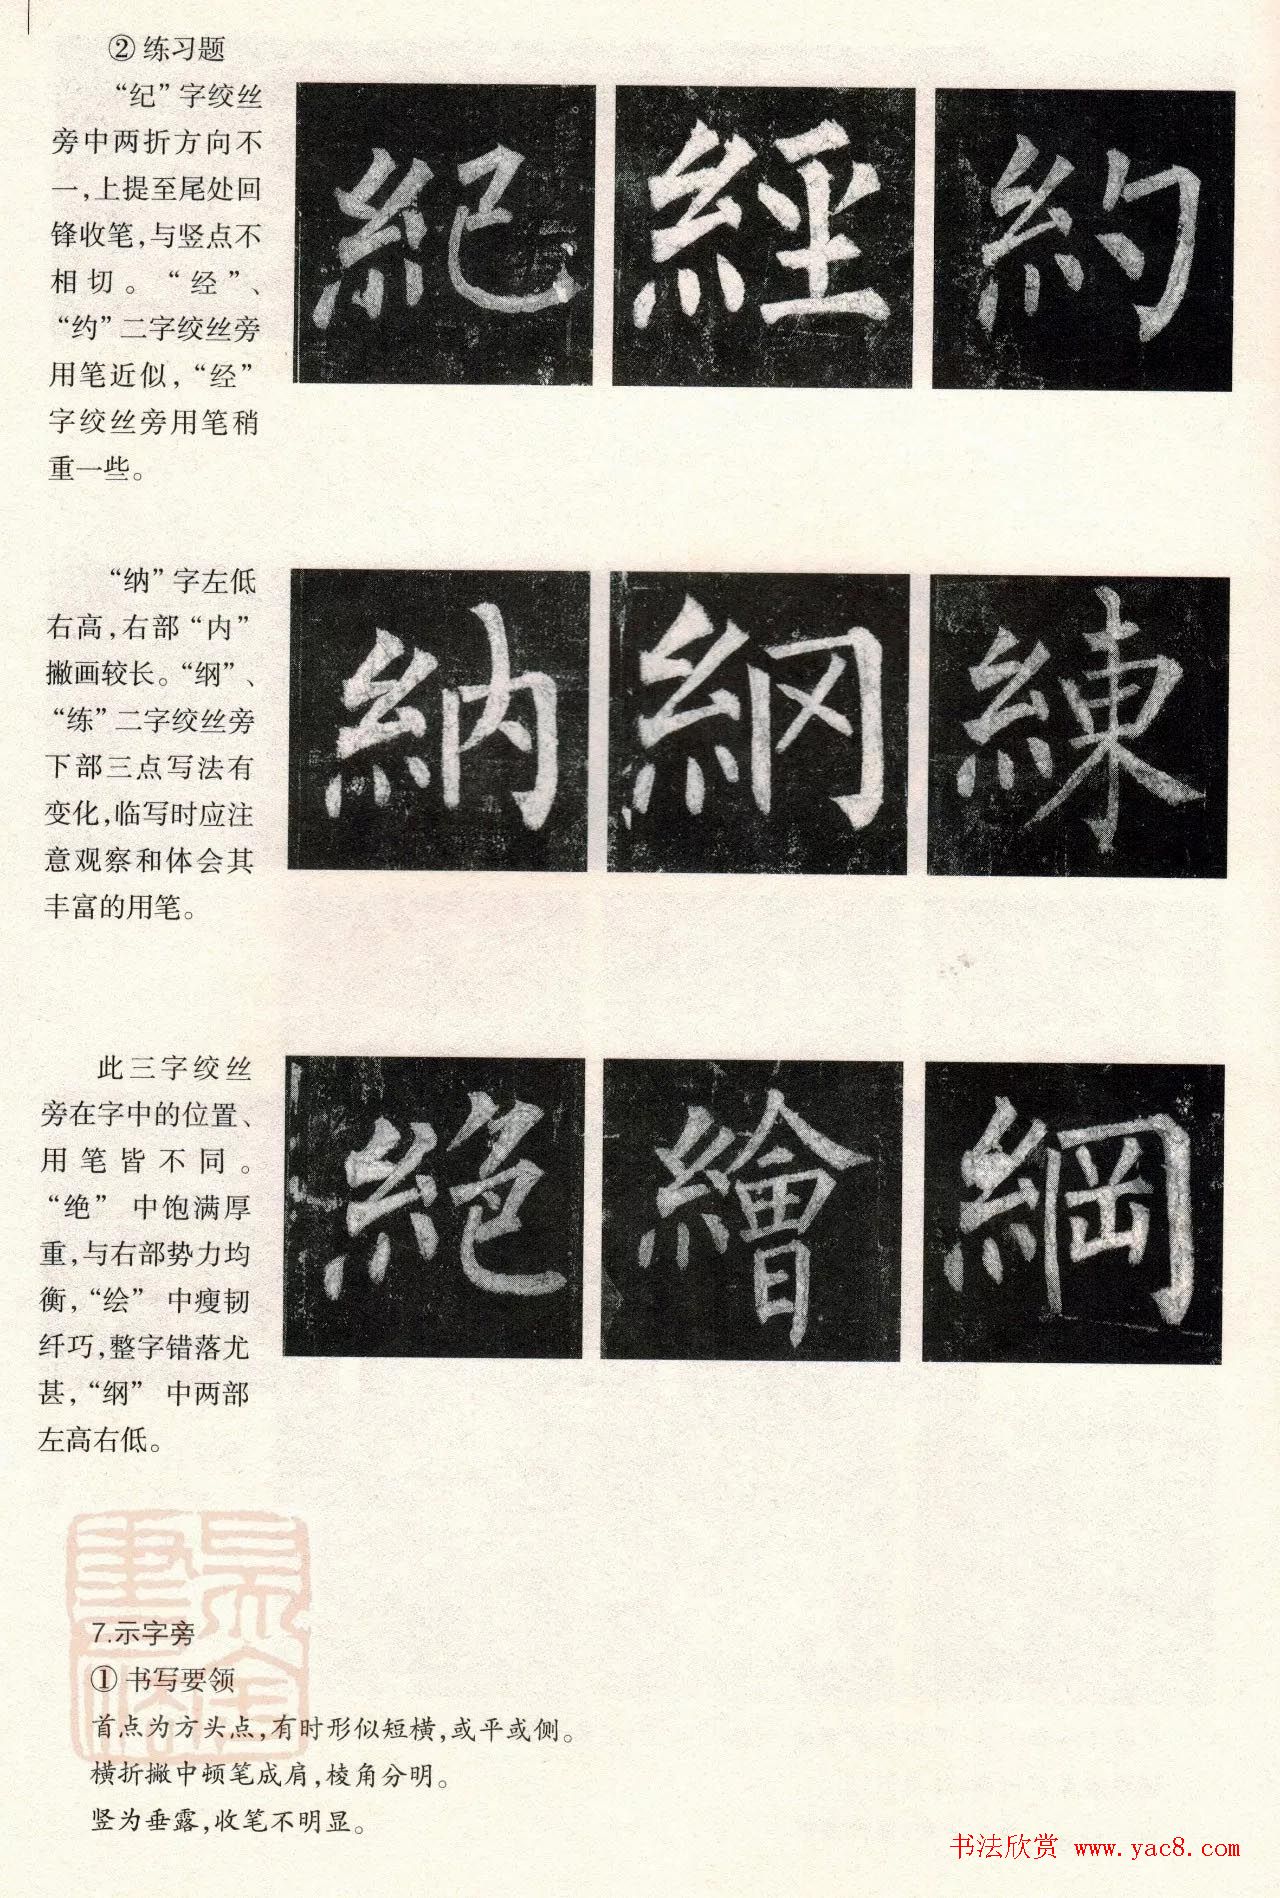 ② 练习题
“纪”字绞丝
旁中两折方向不
一,上提至尾处回
锋收笔,与竖点不
相切。“经”、
“约”二字绞丝旁
用笔近似,“经”
字绞丝旁用笔稍
重一些。
紀 經 約
“纳”字左低
右高,右部“内”
撇画较长。“纲”、
“练”二字绞丝旁
下部三点写法有
变化,临写时应注
意观察和体会其
丰富的用笔。
納 練
此三字绞丝
旁在字中的位置、
用笔皆不同。
“绝” 中饱满厚
重,与右部势力均
衡,“绘” 中瘦韧
纤巧,整字错落尤
甚,“纲” 中两部
左高右低。
絕 繪 綱
7.示字旁
① 书写要领
首点为方头点,有时形似短横,或平或侧。
横折撇中顿笔成肩,棱角分明。
竖为垂露,收笔不明显。
书法欣赏 www.yac8.com